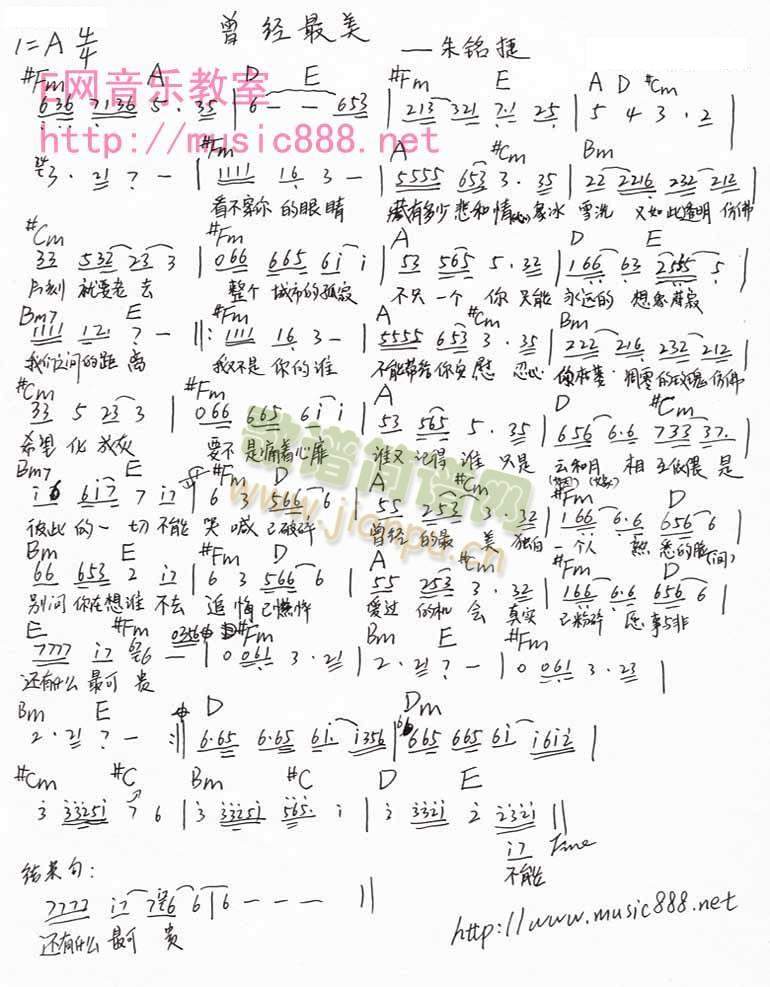 曾经最美
1=A 4/4 ——朱铭捷
E网音乐教室
http://music888.net
#Fm A D E #Fm E A D #Cm
636 7136 5 · 35 | 6 - - 653 | 213 321 7·1 25 | 5 4 3 · 2 |
#Fm A #Cm Bm
3 · 21 7 - | 1111 16 3 - | 5555 653 3 · 35 | 22 2216 232 212 |
看不穿你 的眼睛 藏有多少 悲和情 象冰 雪洗 又如此透明 仿佛
#Cm #Fm A D E
33 532 23 3 | 066 665 6i i | 53 565 5 · 32 | 166 63 2555 5 |
片刻 就要老去 整个 城市的孤寂 不只一个 你 只能 永远的 想象
Bm7 E #Fm A #Cm Bm
1111 121 7 - ‖: 1111 16 3 - | 5555 653 3 · 35 | 222 216 232 212 |
我们之间的距离 我又不是 你的谁 不能带给你安慰 忍心 凋零的玫瑰 仿佛
#Cm #Fm A D #Cm
33 5 23 3 | 066 665 6i i | 53 565 5 · 35 | 656 6·6 733 37· |
希望 化 成灰 要不 是痛着心扉 谁又 记得 谁 只是 云和月 相互依偎 是
Bm7 E #Fm D A #Cm #Fm D
i6 6i7 7 i7 | 6 3 566 6 | 55 253 3 · 32 | 166 6·6 656 6 |
彼此 的一 切不能 哭 喊 已破碎 曾经 的最 美 独自 一个人 熟悉的脸 (间)
Bm E #Fm D A #Cm #Fm D
66 653 2 i7 | 6 3 566 6 | 55 253 3 · 32 | 166 6·6 656 6 |
别问 你在想谁 不去 追悔 已憔悴 爱过 的机会 真实 已粉碎 愿 事与非
E #Fm 0356 #Fm Bm E #Fm
7777 i7 6 - | 0 061 3 · 21 | 2 · 21 7 - | 0 061 3 · 23 |
还有什么 最可 贵
Bm E D Dm
2 · 21 7 - :‖ 6·65 6·65 6i· i356 | 665 665 6i i6i2 |
#Cm #C Bm #C D E
3 33251 7 6 | 3 33251 565· i | 2 3321 2 2321 ‖
i7 Fine
不能
结束句:
7777 i7 7676 6 | 6 - - - ‖
还有什么 最可 贵
http://www.music888.net
歌谱简谱网
www.jianpu.cn